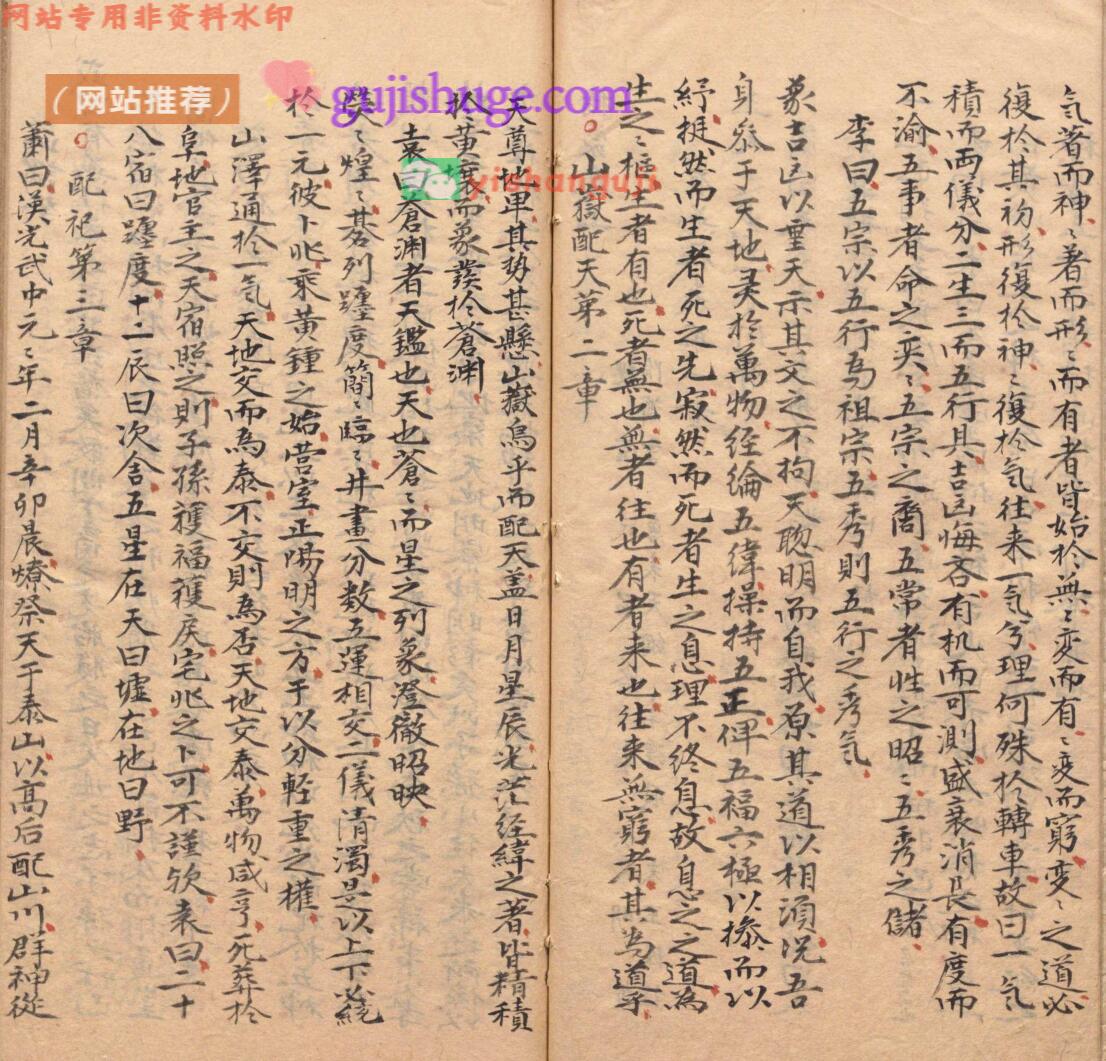 网站专用非资料水印
（网站推荐）
gujishuge.com
yishanguji
气著而神〻著而形〻而有者皆始於無〻变而有〻变而窮变〻之道必
復於其初形復於神〻復於气往来一气兮理何殊於轉車故曰一气
積而两儀分二生三而五行具吉凶悔吝有机而可測盛衰消長有度而
不渝五事者命之奕〻五宗之裔五常者性之昭〻五秀之儲
李曰五宗以五行為祖宗五秀則五行之秀气
象吉凶以垂天示其文之不拘天聡明而自我原其道以相須况吾
身叅于天地灵於萬物经綸五緯操持五正俾五福六極以摻而以
紓挺然而生者死之先寂然而死者生之息理不终息故息之之道為
生之〻樞生者有也死者無也無者往也有者来也往来無窮者其為道乎
山嶽配天第二章
天尊地卑其势甚懸山嶽烏乎而配天盖日月星辰光茫经緯之著皆精積
於黄壤而象發於蒼渊
袁曰蒼渊者天鑑也天也蒼〻而星之列象澄徹昭映
熒〻煌〻碁列躔度簡〻臨〻井畫分数五運相交二儀清濁是以上下必統
於一元彼卜兆乘黄鍾之始营室正陽明之方于以分輕重之權
山澤通於一气天地交而為泰不交則為否天地交泰萬物咸亨死葬於
阜地官主之天宿照之則子孫獲福獲戾宅兆之卜可不謹欤袁曰二十
八宿曰躔度十二辰曰次舍五星在天曰墟在地曰野
配祀第三章
蕭曰漢光武中元〻年二月辛卯晨燎祭天于泰山以高后配山川群神從